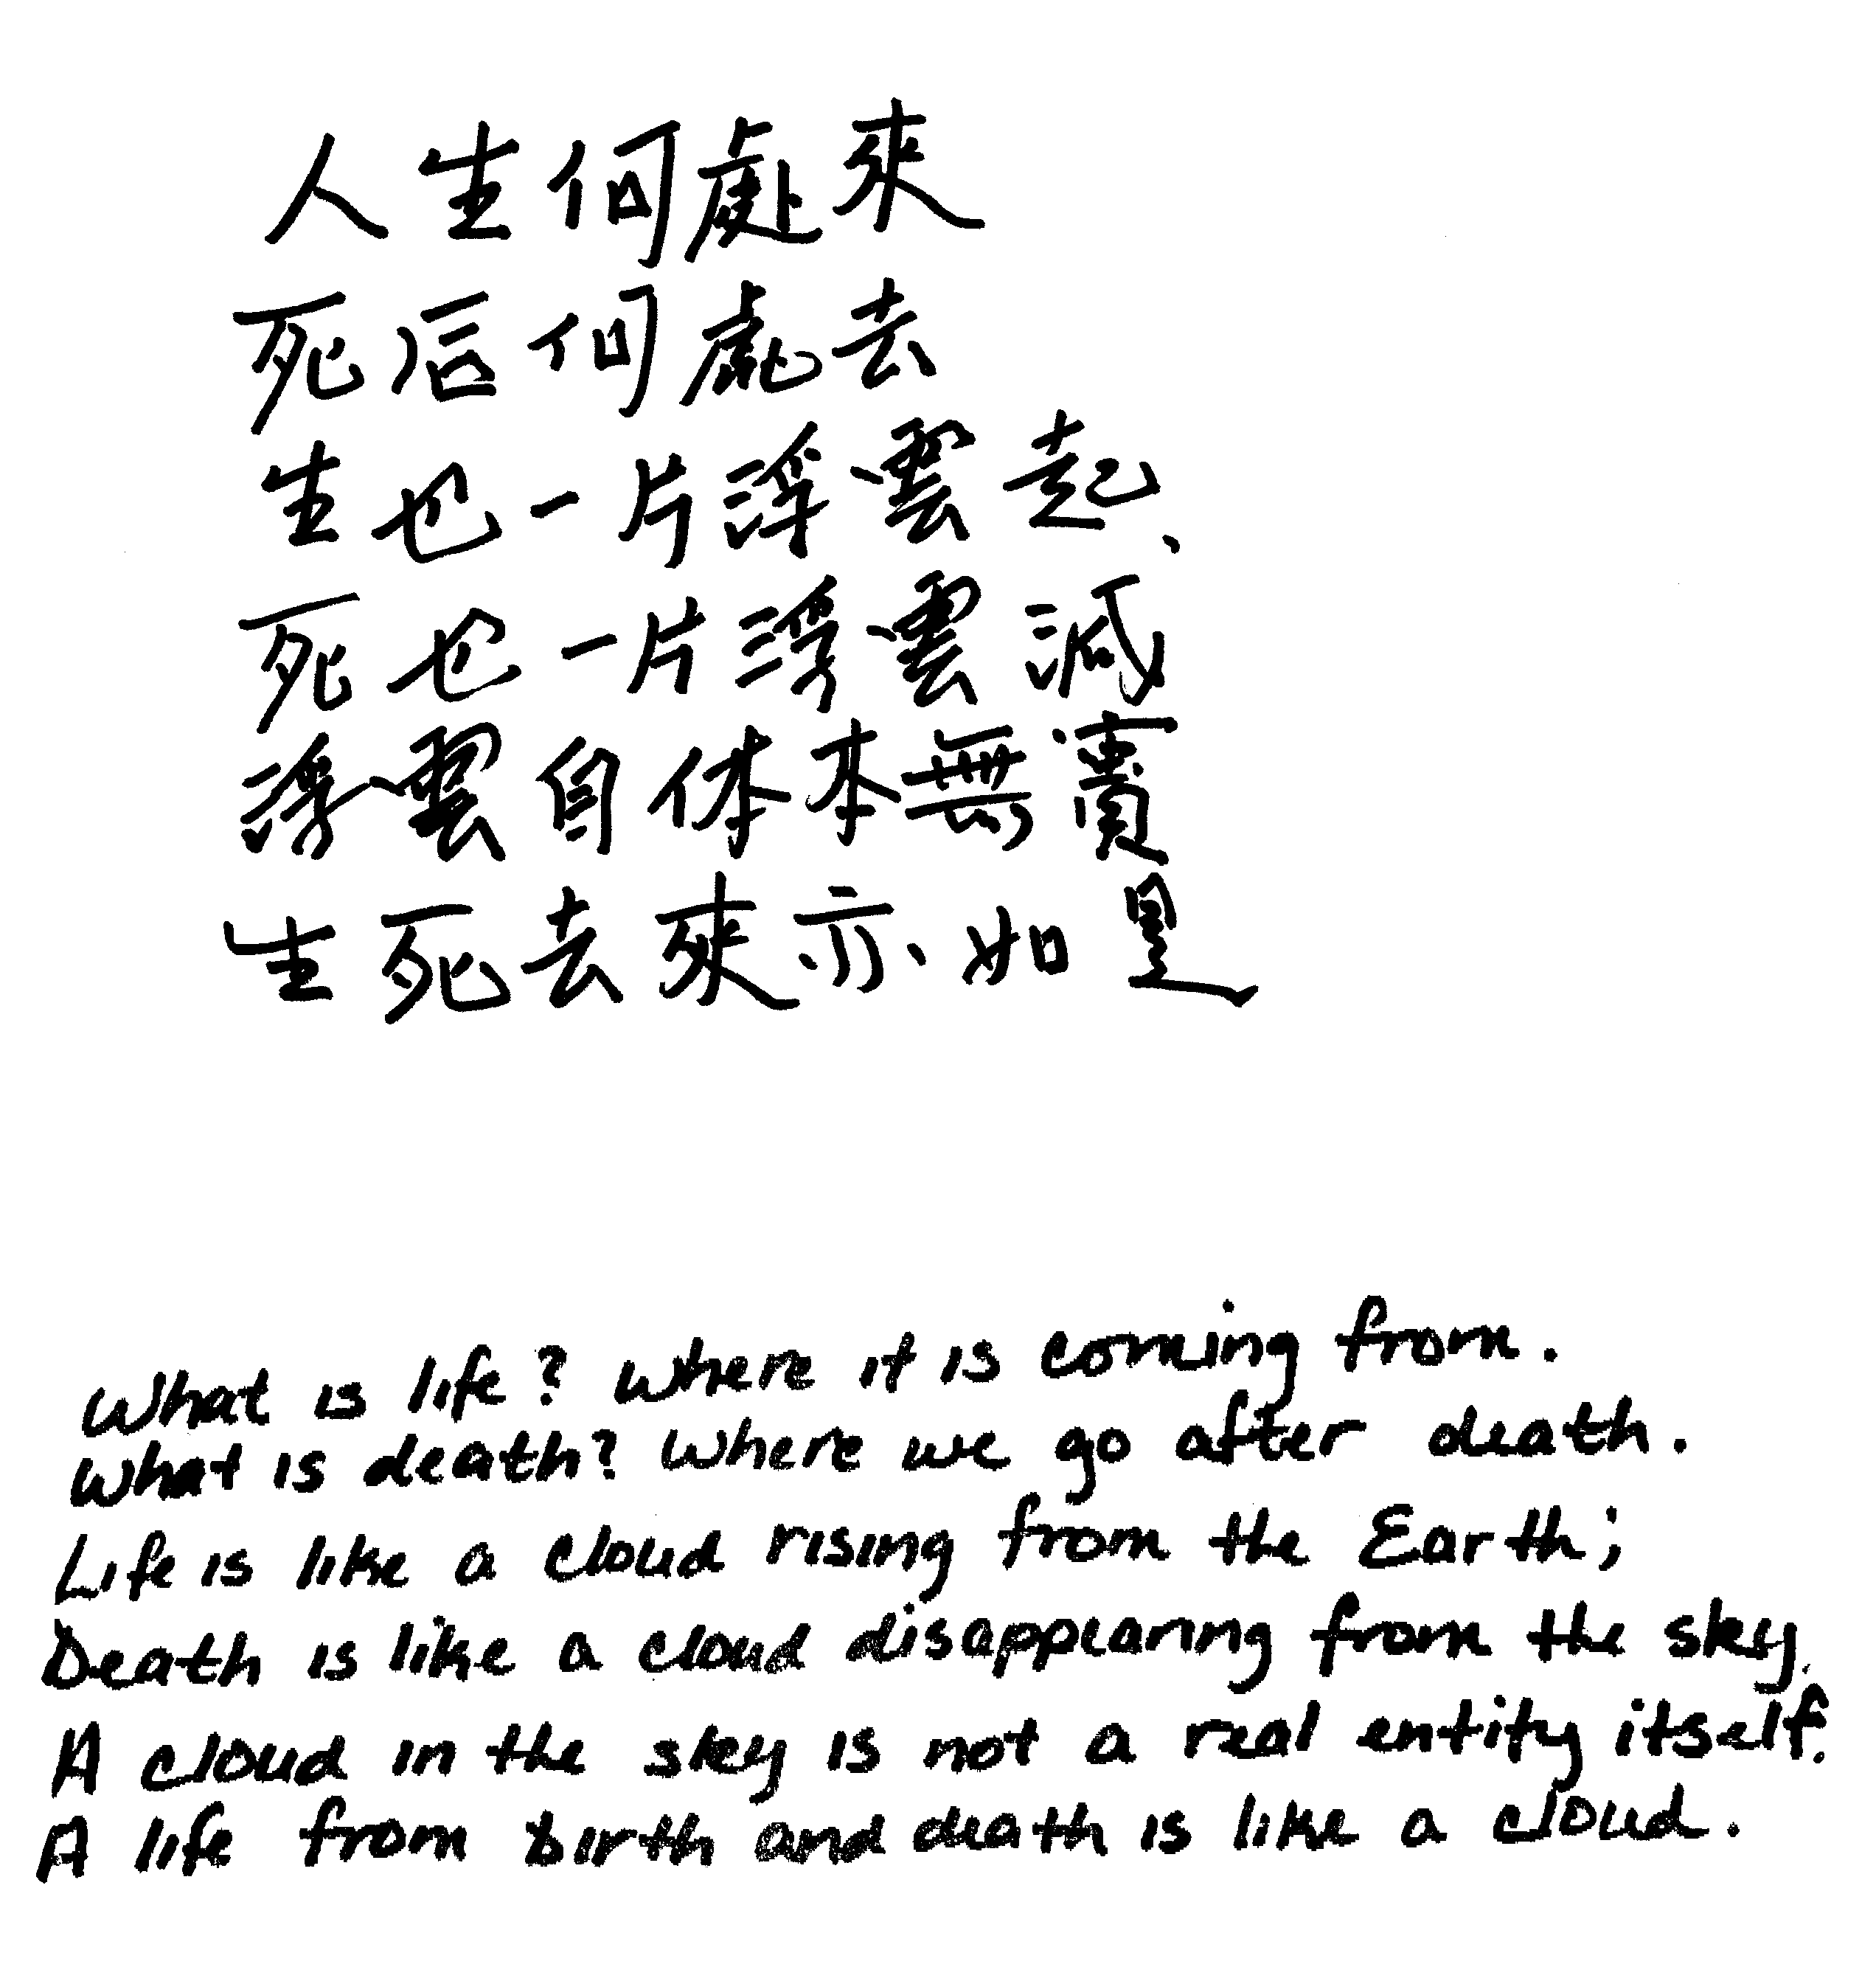 人生何處來
死后何處去
生也一片浮雲起、
死也一片浮雲減
浮雲自体本無實
生死去來亦如是
What is life? Where it is coming from.
What is death? Where we go after death.
Life is like a cloud rising from the Earth;
Death is like a cloud disappearing from the sky.
A cloud in the sky is not a real entity itself.
A life from birth and death is like a cloud.